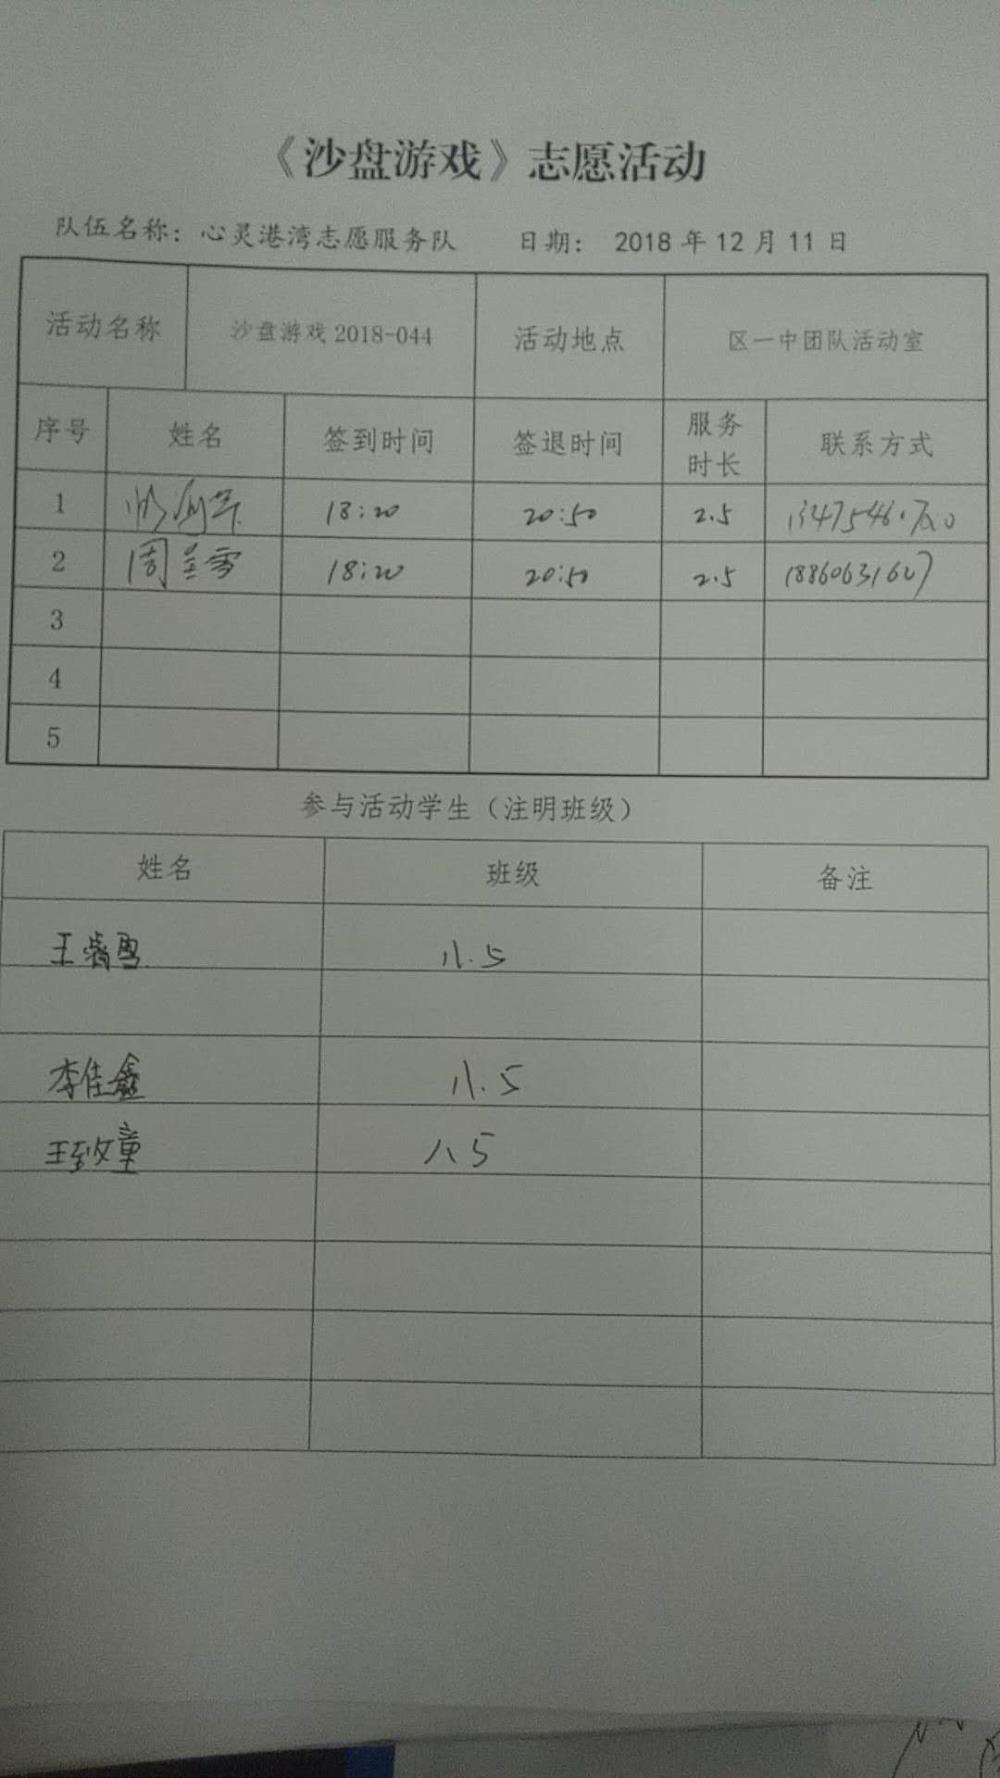 《沙盘游戏》志愿活动
队伍名称：心灵港湾志愿服务队 日期： 2018 年 12 月 11 日
活动名称 沙盘游戏 2018-044 活动地点 区一中团队活动室
序号 姓名 签到时间 签退时间 服务时长 联系方式
1 18:20 20:50 2.5
2 周 雪 18:20 20:50 2.5
3
4
5
参与活动学生（注明班级）
姓名 班级 备注
王 雪 八.5
李佳鑫 八.5
王致童 八5